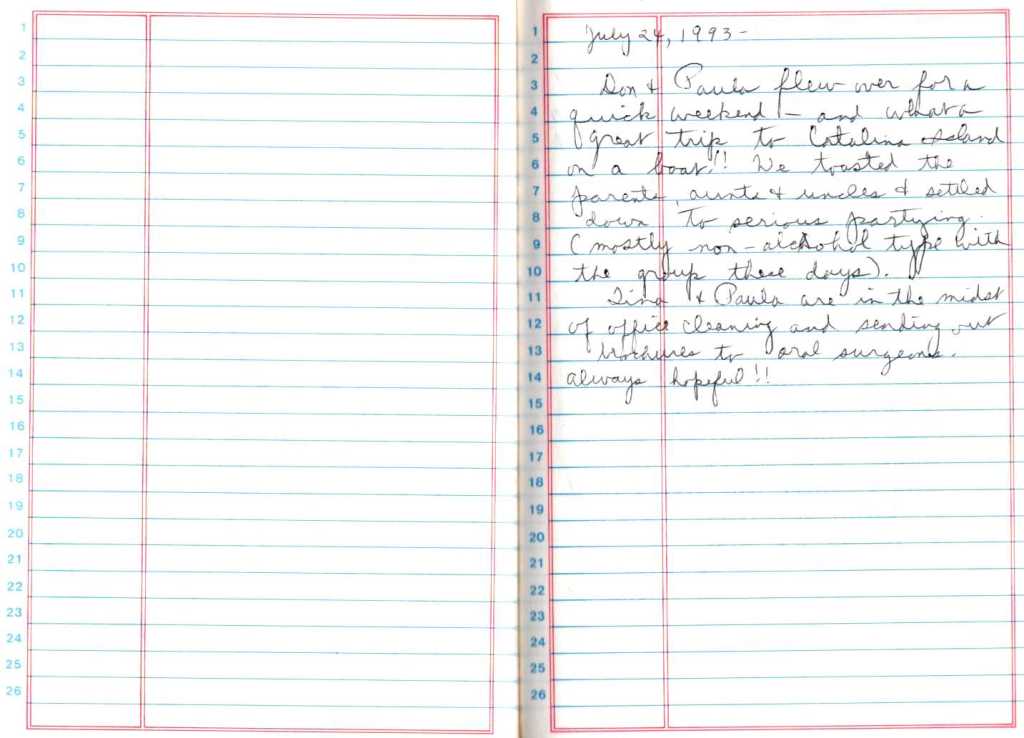 1
2
3
4
5
6
7
8
9
10
11
12
13
14
15
16
17
18
19
20
21
22
23
24
25
26
1 July 24, 1993-
2
3 Don & Paula flew over for a
4 quick weekend - and what a
5 great trip to Catalina Island
6 on a boat!! We toasted the
7 parents, aunts & uncles & settled
8 down to serious partying.
9 (mostly non-alchohol type with
10 the group these days).
11 Tina & Paula are in the midst
12 of office cleaning and sending out
13 brochures to oral surgeons.
14 always hopeful!!
15
16
17
18
19
20
21
22
23
24
25
26